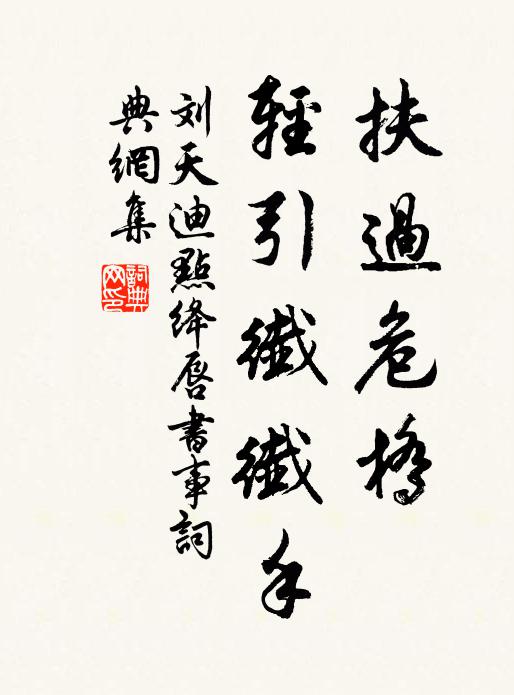 扶過危橋
輕引纖纖手
刘天迪點绛唇書事詞
典網集
詞典網印